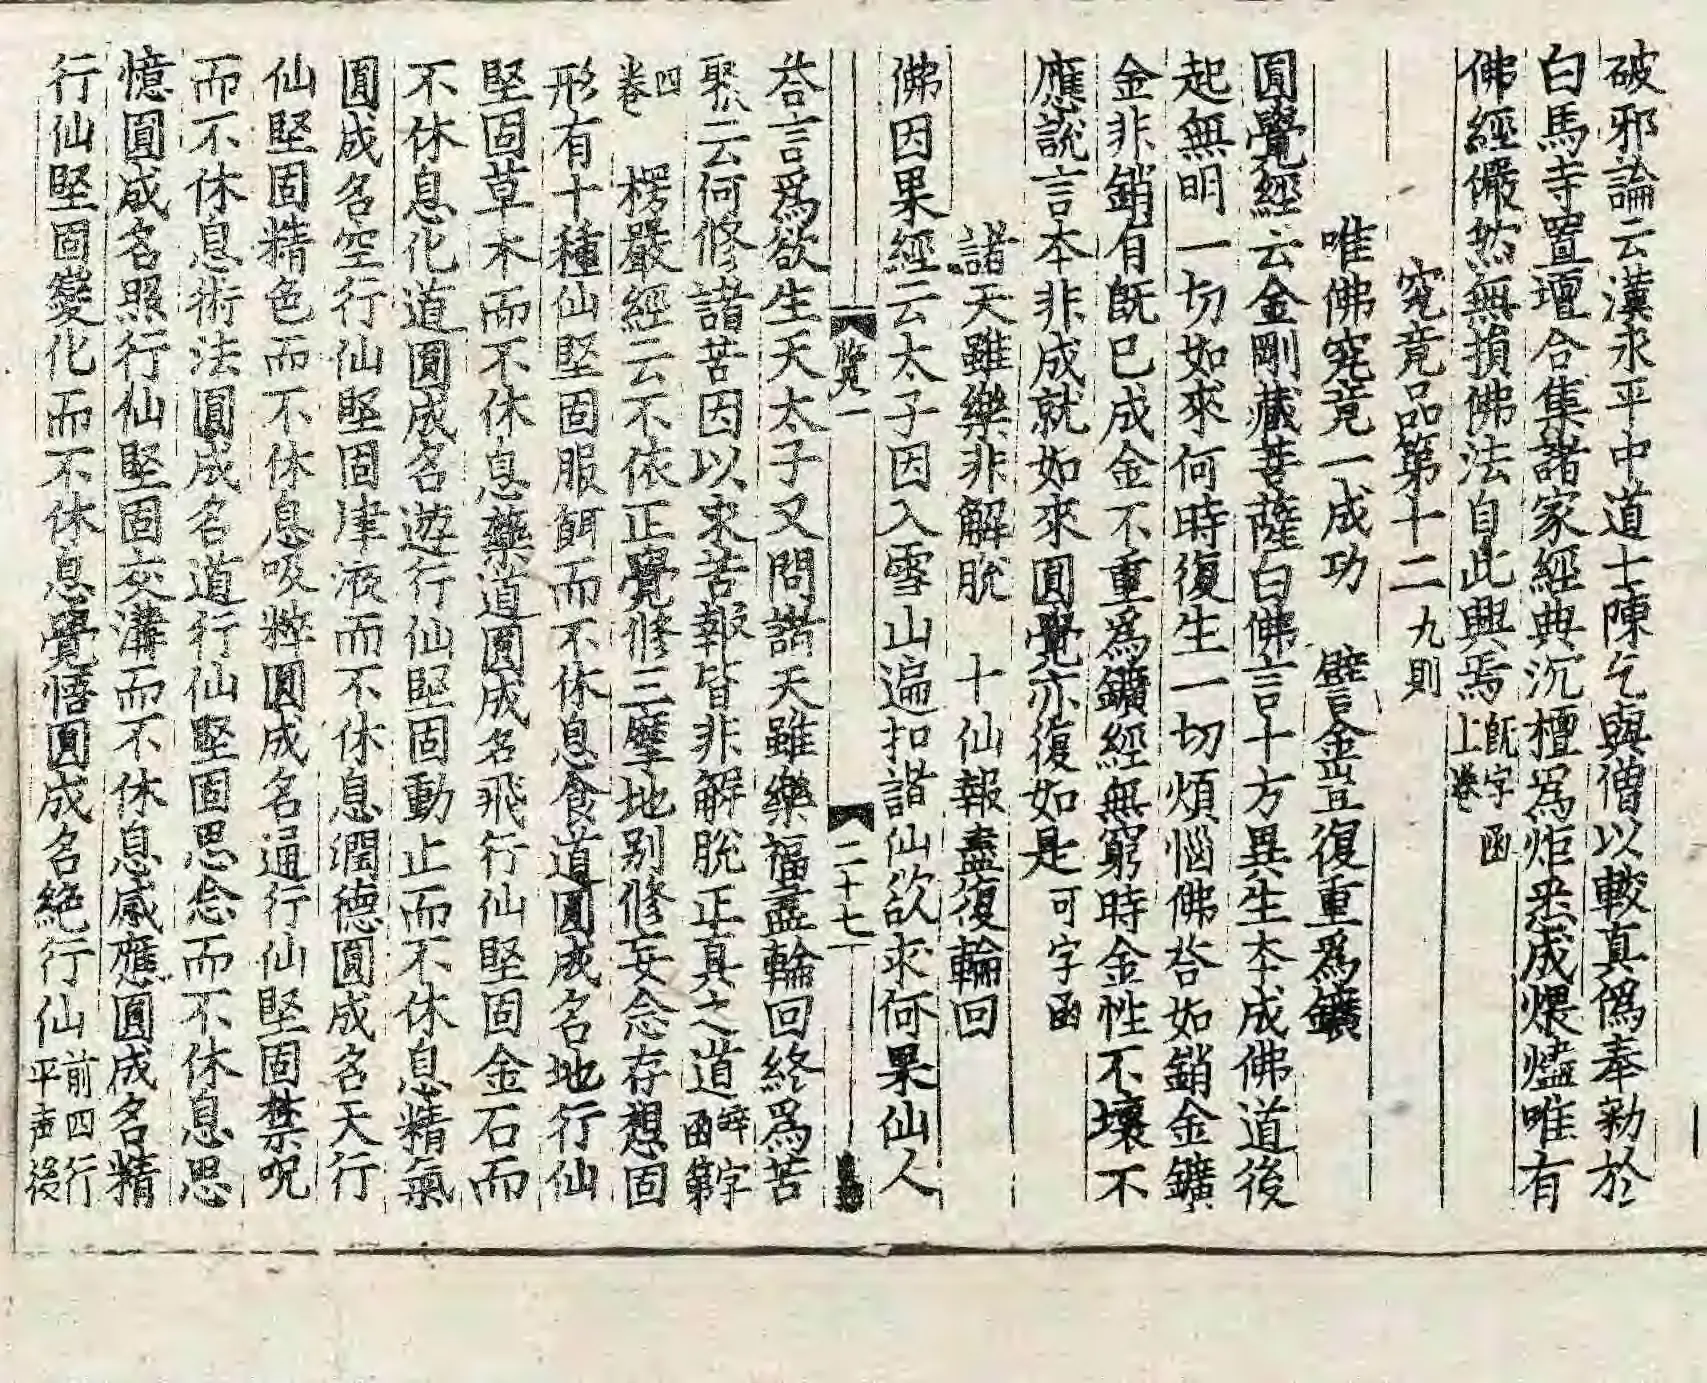 破邪論云漢永平中道士陳乞與僧以較真僞奉勑於
白馬寺置壇合集諸家經典沉檀爲炬悉成煨燼唯有
佛經儼然無損佛法自此興焉 旣字函上卷
究竟品第十二 九則
唯佛究竟一成功 譬金豈復重爲鑛
圓覺經云金剛藏菩薩白佛言十方異生本成佛道後
起無明一切如來何時復生一切煩惱佛荅如銷金鑛
金非銷有旣已成金不重爲鑛經無窮時金性不壞不
應說言本非成就如來圓覺亦復如是 可字函
諸天雖樂非解脫 十仙報盡復輪回
佛因果經云太子因入雪山遍扣諸仙欲求何果仙人
覧一 二十七
荅言爲欲生天太子又問諸天雖樂福盡輪回終爲苦
聚云何修諸苦因以求苦報皆非解脫正真之道 字函第
四卷 楞嚴經云不依正覺修三摩地别修妄念存想固
形有十種仙堅固服餌而不休息食道圓成名地行仙
堅固草木而不休息藥道圓成名飛行仙堅固金石而
不休息化道圓成名遊行仙堅固動止而不休息精氣
圓成名空行仙堅固津液而不休息潤德圓成名天行
仙堅固精色而不休息吸粹圓成名通行仙堅固禁呪
而不休息術法圓成名道行仙堅固思念而不休息思
憶圓成名照行仙堅固交溝而不休息感應圓成名精
行仙堅固變化而不休息覺悟圓成名絶行仙 前四行平声後